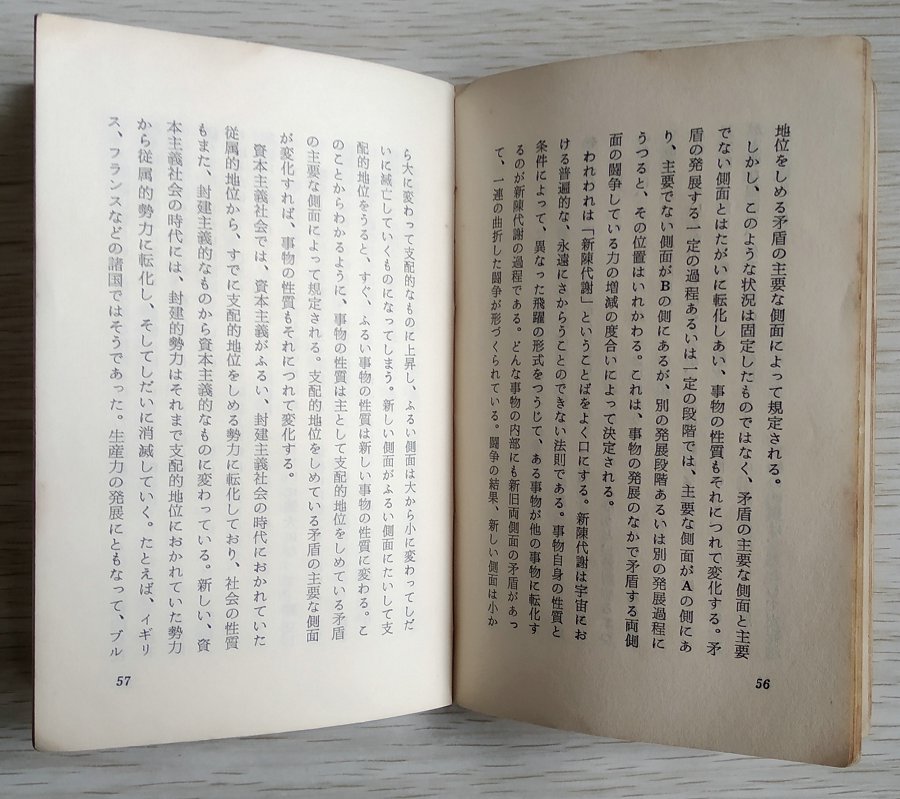 地位をしめる矛盾の主要な側面によって規定される。
しかし、このような状況は固定したものではなく、矛盾の主要な側面と主要
でない側面とはたがいに転化しあい、事物の性質もそれにつれて変化する。矛
盾の発展する一定の過程あるいは一定の段階では、主要な側面がAの側にあ
り、主要でない側面がBの側にあるが、別の発展段階あるいは別の発展過程に
うつると、その位置はいれかわる。これは、事物の発展のなかで矛盾する両側
面の闘争している力の増減の度合いによって決定される。
われわれは「新陳代謝」ということばをよく口にする。新陳代謝は宇宙にお
ける普遍的な、永遠にさからうことのできない法則である。事物自身の性質と
条件によって、異なった飛躍の形式をつうじて、ある事物が他の事物に転化す
るのが新陳代謝の過程である。どんな事物の内部にも新旧両側面の矛盾があっ
て、一連の曲折した闘争が形づくられている。闘争の結果、新しい側面は小か
56
ら大に変わって支配的なものに上昇し、ふるい側面は大から小に変わってしだ
いに滅亡していくものになってしまう。新しい側面がふるい側面にたいして支
配的地位をうると、すぐ、ふるい事物の性質は新しい事物の性質に変わる。こ
のことからわかるように、事物の性質は主として支配的地位をしめている矛盾
の主要な側面によって規定される。支配的地位をしめている矛盾の主要な側面
が変化すれば、事物の性質もそれにつれて変化する。
資本主義社会では、資本主義がふるい、封建主義社会の時代におかれていた
従属的地位から、すでに支配的地位をしめる勢力に転化しており、社会の性質
もまた、封建主義的なものから資本主義的なものに変わっている。新しい、資
本主義社会の時代には、封建的勢力はそれまで支配的地位におかれていた勢力
から従属的勢力に転化し、そしてしだいに消滅していく。たとえば、イギリ
ス、フランスなどの諸国ではそうであった。生産力の発展にともなって、ブル
57